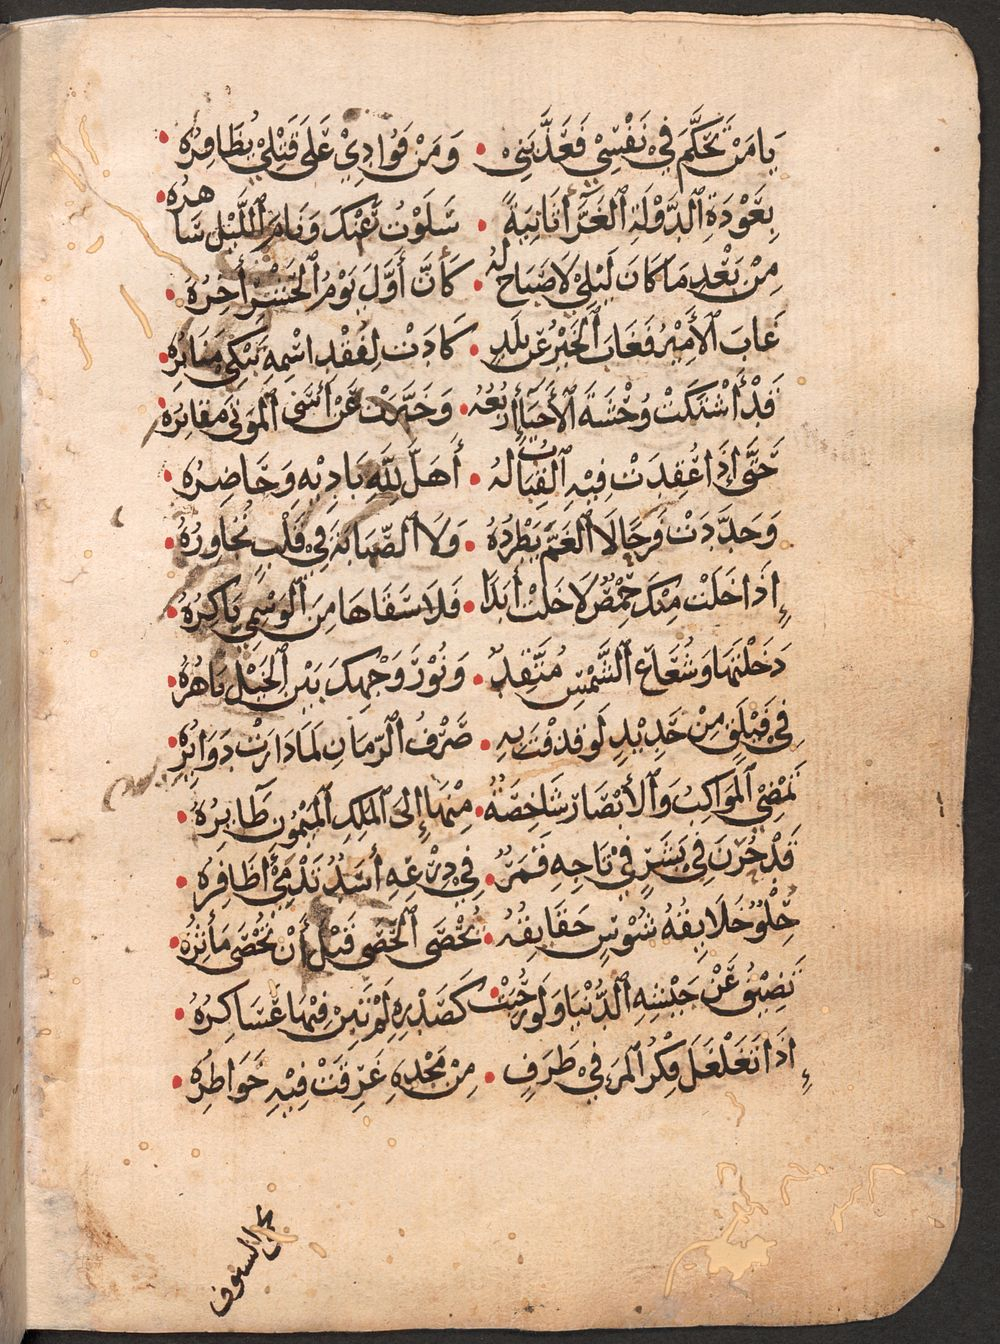 يَا مَنْ تَحَكَّمَ فِيْ نَفْسِيْ فَعَذَّبَنِيْ • وَمَنْ فَوُادِيْ عَلَى قَتْلِيْ يُظَافِرُهُ •
بِعَوْدَةِ الدَّوْلَةِ الغَرَّآ ثَانِيَةً • سَلَوْتُ عَنْكَ وَنَامَ اللَّيْلَ سَاهِرُهُ •
مِنْ بَعْدِ مَا كَانَ لَيْلِيْ لَا صَبَاحَ لَهُ • كَأَنَّ أَوَّلَ يَوْمُ الحَشْرِ أٰخِرُهُ •
غَابَ الأَمِيْرُ فَغَابَ الخَيْرُ عَنْ بَلَدٍ • كَادَتْ لِفَقْدِ اسْمِهِ تَبْكِي مَنَابِرُهُ •
قَدْ أَشْتَكَتْ وَحْشَةَ الأَحْيَآ أَرْبُعُهُ • وَخَبَّرَتْ عَنْ أَسَى المَوْتَى مَقَابِرُهُ •
حَتَّى إِذَا عُقِدَتْ فِيْهِ القِبَابُ لَهُ • أَهَلَّ لِلَّهِ بَادِيْهِ وَحَاضِرُهُ •
وَجَدَّدَتْ فَرَحًا لَا الغَمُّ يَطْرُدُهُ • وَلَا الصَّبَابَةُ فِيْ قَلْبٍ تُجَاوِرُهُ •
إِذَا خَلَتْ مِنْكَ حِمْصٌ لَا خَلَتْ أَبَدًا • فَلَا سَقَاهَا مِنَ الوَسْمِيِّ بَاكِرُهُ •
دَخَلْتَهَا وَشُعَاعُ الشَّمْسِ مُتَّقِدٌ • وَنُوْرُ وَجْهِكَ بَيْنَ الخَيْلِ بَاهِرُهُ •
فِي فَيْلَقٍ مِنْ حَدِيْدٍ لَوْ قَذَفْتَ بِهِ • صَرْفُ الزَّمَانِ لَمَا دَارَتْ دَوَايِرُهُ •
تَمْضِي المَوَاكِبُ وَالأَبْصَارُ شَاخِصَةٌ • مِنْهَا إِلَى المَلِكِ المَيْمُونِ طَآئِرُهُ •
قَدْ حُزْنَ فِي بَشَرٍ فِيْ تَاجِهِ قَمَرٌ • فِي دِرْعِهِ أَسَدٌ تَدْمِيْ أَظَافِرُهُ •
حُلْوٌ خَلَايِقُهُ شُوْسٍ حَقَايِقُهُ • تُحْصَى الحَصَى قَبْلَ أَنْ تُحْصَى مَأٰثِرُهُ •
تَضِيْقُ عَنْ جَيْشِهِ الدُّنْيَا وَلَوْ رَحُبَتْ • كَصَدْرِهِ لَمْ تَبِنْ فِيْهَا عَسَاكِرُهُ •
إِذَا تَغَلْغَلَ فِكْرُ المَرَءِ فِيْ طَرَفٍ • مِنْ مَجْدِهِ غَرِقَتْ فِيْهِ خَوَاطِرُهُ •
السيوف